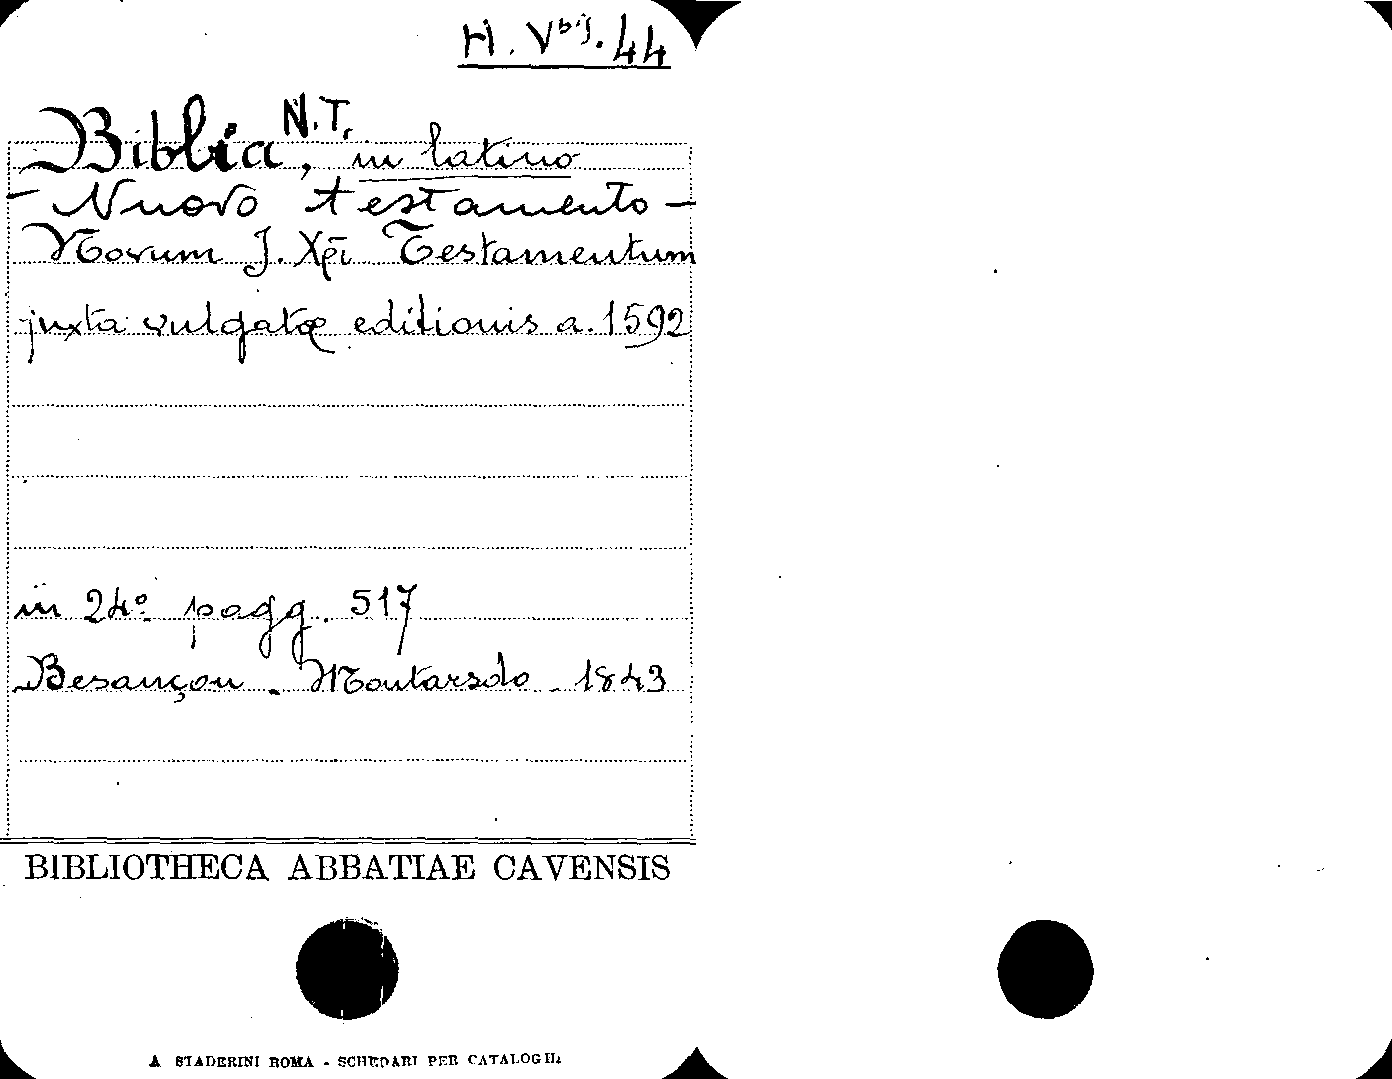 H. V bis. 44
Biblia, N.T. in latino
- Nuovo testamento -
Novum J. Xpi Testamentum
juxta vulgatæ editionis a. 1592
in 24º pagg. 517
Besançon - Montarsolo - 1843
BIBLIOTHECA ABBATIAE CAVENSIS
STADERINI ROMA - SCHEDARI PER CATALOGHI